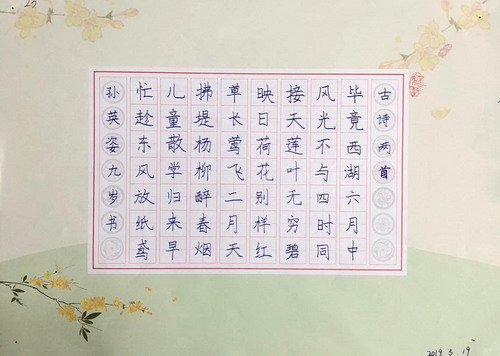 古诗两首
毕竟西湖六月中
风光不与四时同
接天莲叶无穷碧
映日荷花别样红
草长莺飞二月天
拂堤杨柳醉春烟
儿童散学归来早
忙趁东风放纸鸢
孙英姿九岁书
2019.5.19